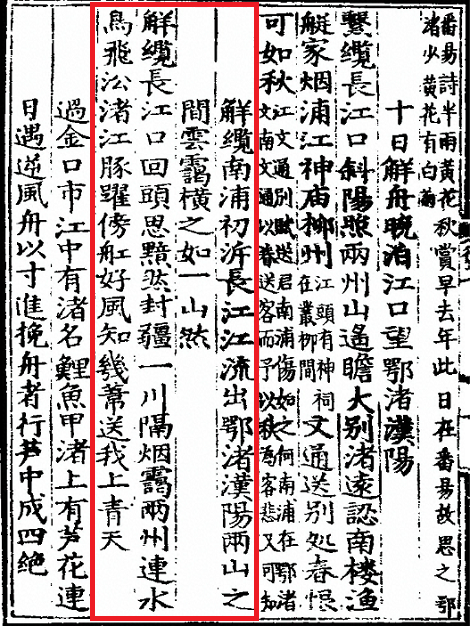 番昜詩半雨黃花秋賞早去年此日在番昜故思之鄂
渚少黃花有白
十日解舟晚泊江口望鄂渚漢陽
繫纜長江口斜陽照兩州山遙瞻大别渚遠認南楼漁
艇家烟浦江神庙柳州江頭有神祠在叢柳間文通送别処春恨
可如秋江文通别賦送君南浦傷如之何南浦在鄂渚文南文通以春送客而予以秋為客悲又可知
解纜南浦初泝長江江流出鄂渚漢陽兩山之
間雲靄橫之如一山然
解纜長江口回頭思黯然封疆一川隔烟靄兩州連水
鳥飛㳂渚江豚躍傍舡好風知幾幕送我上青天
過金口市江中有渚名鯉魚甲渚上有芦花連
日遇逆風舟以寸進挽舟者行芦中成四絶